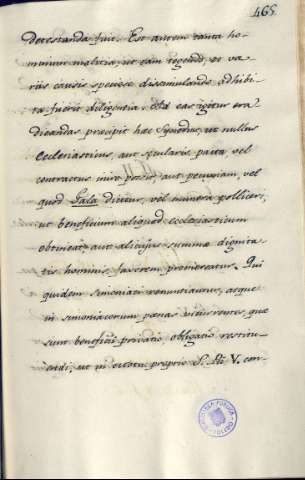 465.
detestanda fuit. Est autem tanta ho-
minum malitia, ut eam tegendo, et va-
riis causis speciose dissimulando adhibi-
ta fuerit diligentia. Ad eas igitur era
dicandas præcipit hæc Synodus, ut nullus
ecclesiasticus, aut secularis pacta, vel
contractus inire possit, aut pecuniam, vel
quod Gala dicitur, vel munera polliceri,
ut beneficium aliquod ecclesiasticum
obtineat, aut alicujus summæ dignita-
tis hominis favorem promereatur. Qui
quidem simoniaci renuntiantur, atque
in simoniacorum pœnas incurrentes, quæ
sunt beneficii privatio obligatio restitu-
endi, ut in motu proprio S. Pii V. con-